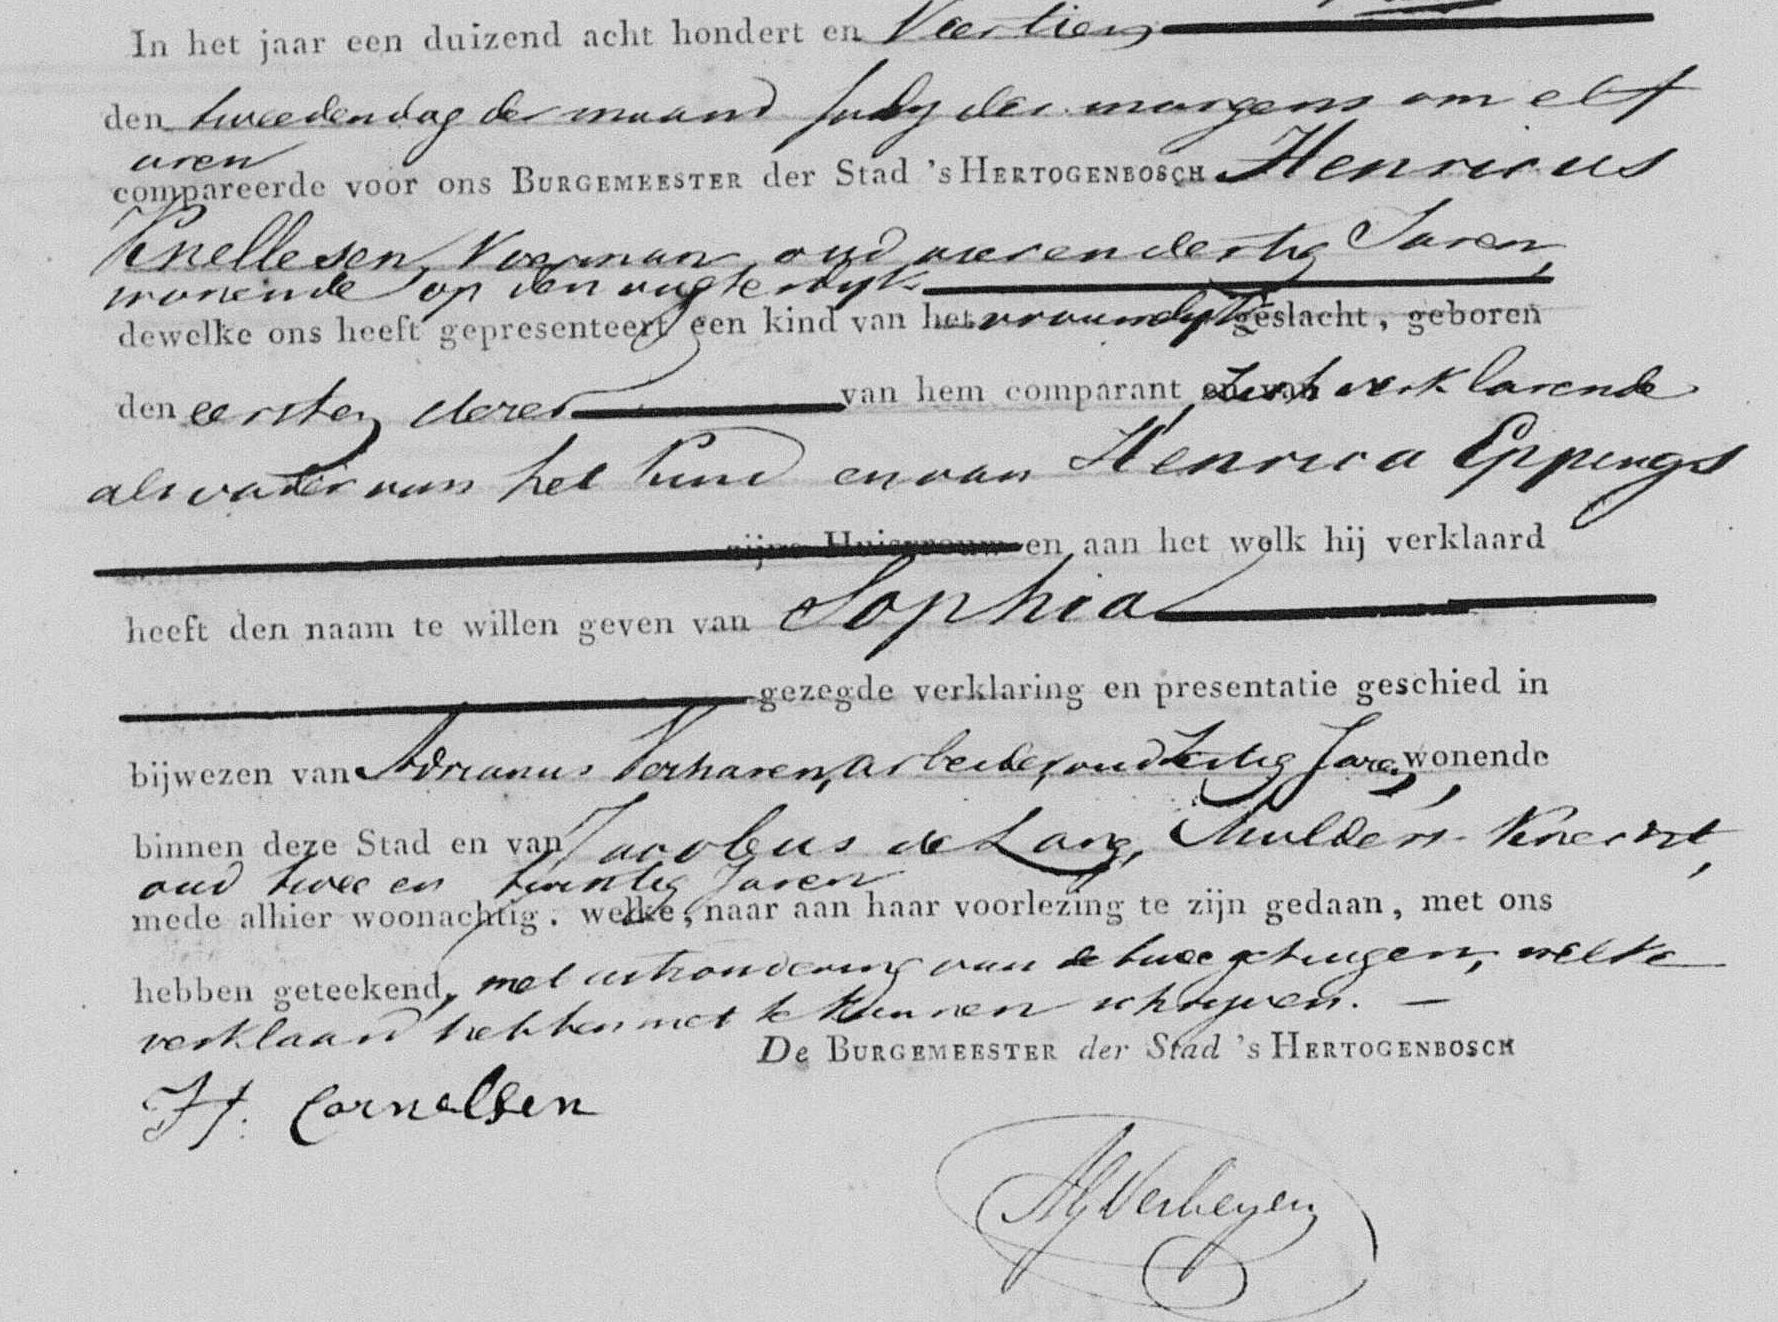 In het jaar een duizend acht hondert en Veertien
den tweeden dag der maand July des morgens om elf
uren
compareerde voor ons BURGEMEESTER der Stad 's HERTOGENBOSCH Henricus
Knellesen, Voerman, oud vierendertig Jaren,
wonende op den vugterdyk
dewelke ons heeft gepresenteert een kind van het vrouwelyk geslacht, geboren
den eersten dezer van hem comparant zich verklarende
als vader van het kind en van Henrica Eppings
zijne Huisvrouw en aan het welk hij verklaard
heeft den naam te willen geven van Sophia
gezegde verklaring en presentatie geschied in
bijwezen van Adrianus Verharen, arbeider, oud zestig Jaren, wonende
binnen deze Stad en van Jacobus de Lang, Mulders Knecht,
oud twee en twintig Jaren
mede alhier woonachtig. welke, naar aan haar voorlezing te zijn gedaan, met ons
hebben geteekend, met uitzondering van de twee getuigen, welke
verklaard hebben niet te kunnen schryven. —
De BURGEMEESTER der Stad 's HERTOGENBOSCH
H. Cornelsen
AGVerheyen